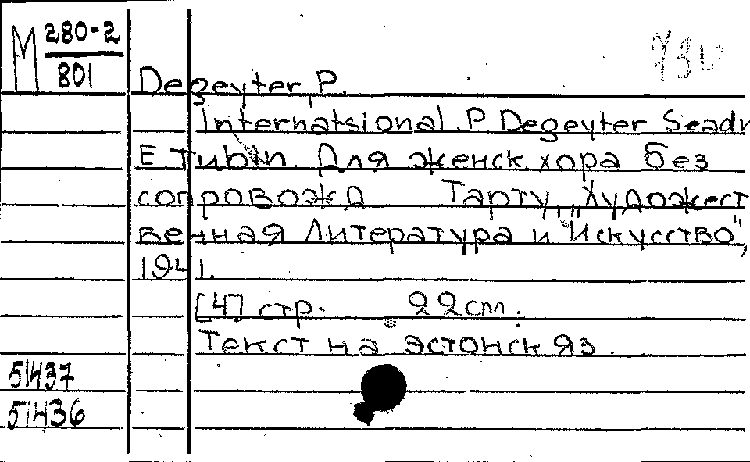 М 280-2
801
Degeyter P.
Internatsional. P Degeyter Seadn
E Tubin. Для женск хора без
сопровожд Тарту, "Художест
венная Литература и Искусство",
1941.
[4] стр. 22 cm.
Текст на эстонск яз.
51437
51436